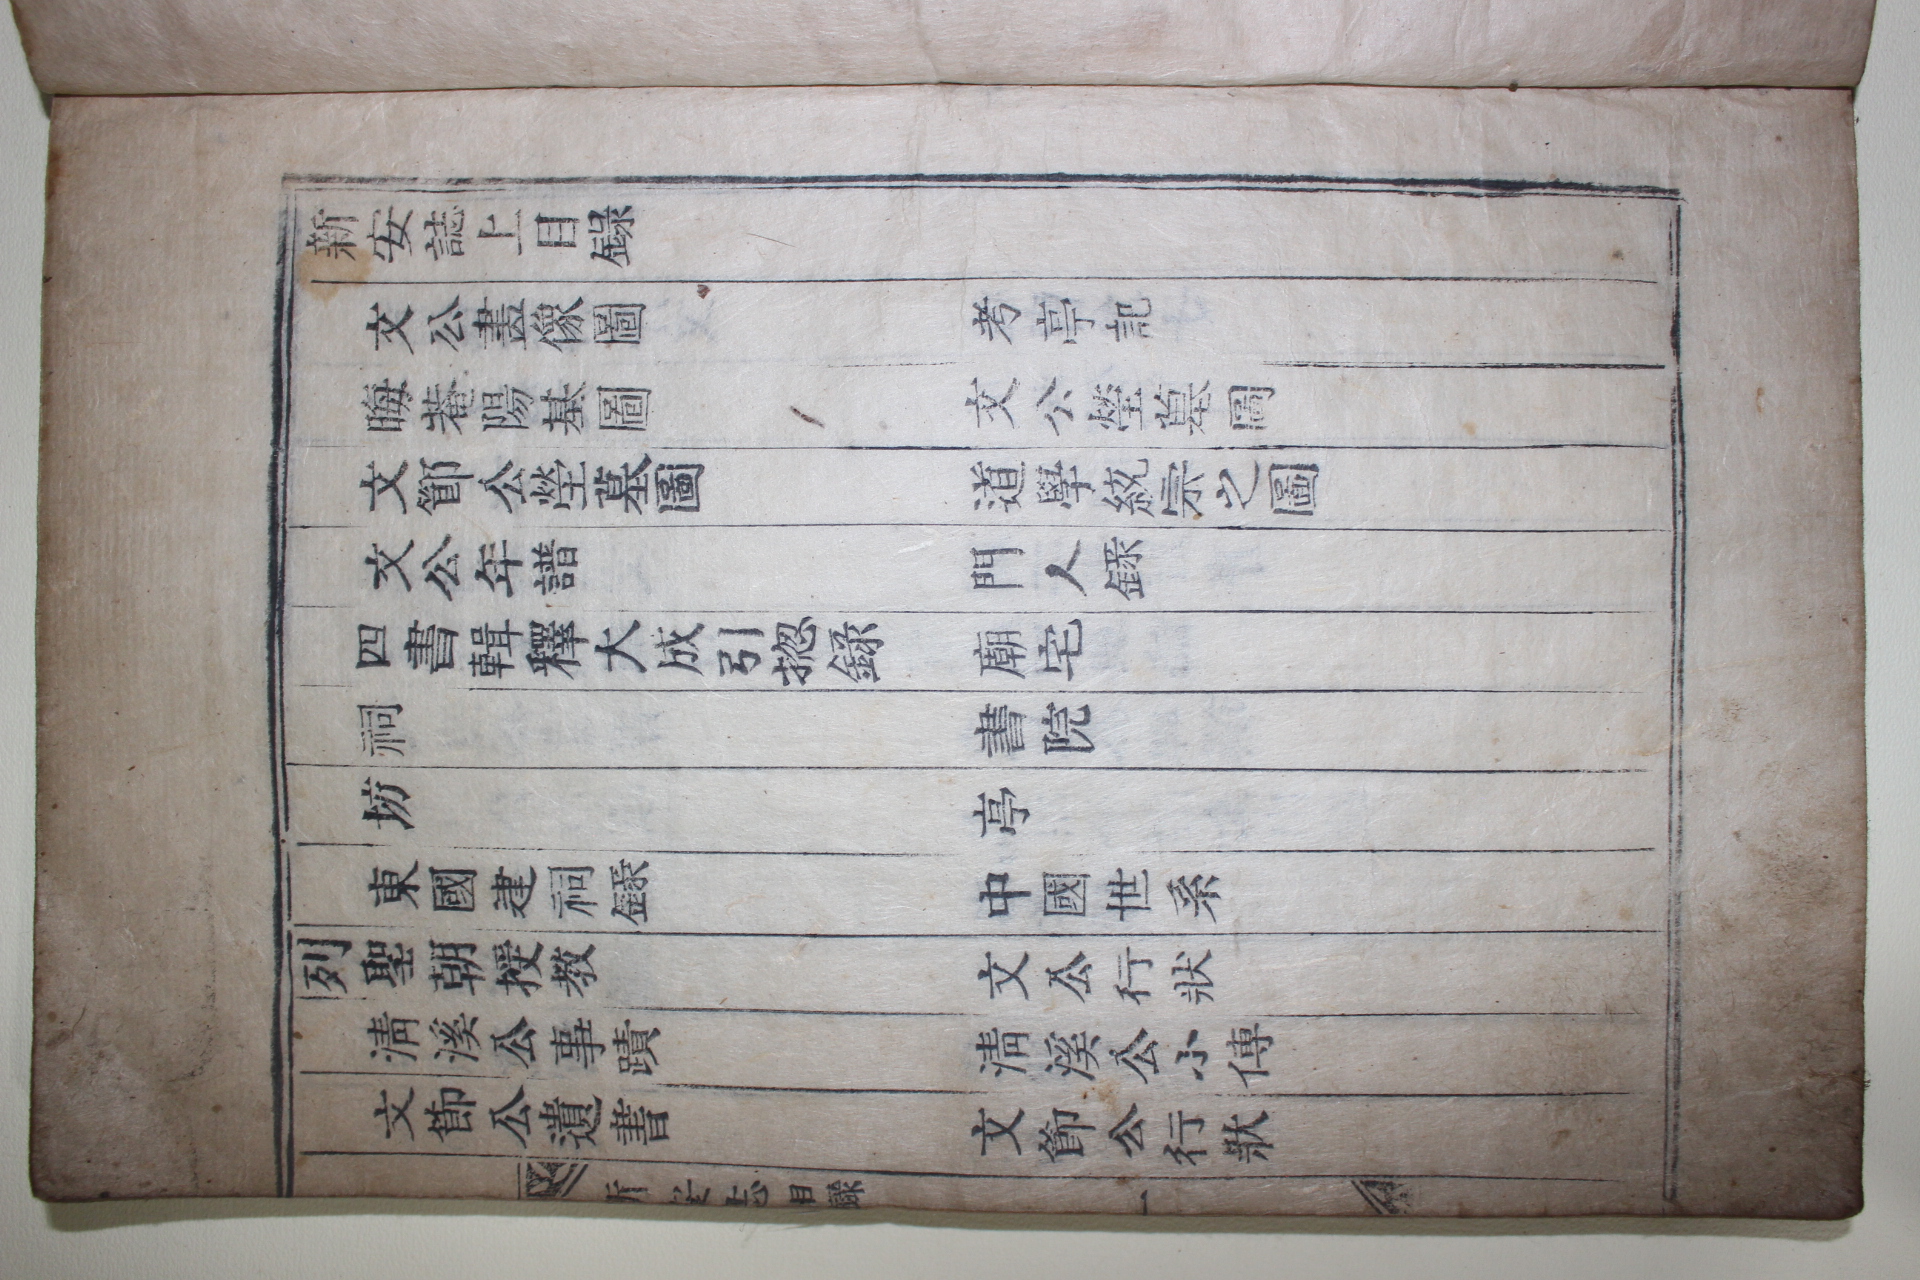 新安誌上目錄
文公畫像圖 考亭記
晦菴陽基圖 文公塋墓圖
文節公塋墓圖 道學統宗之圖
文公年譜 門人錄
四書輯釋大成引揔錄 廟宅
祠 書院
坊 亭
東國建祠錄 中國世系
列聖朝授教 文公行狀
淸溪公事蹟 淸溪公小傳
文節公遺書 文節公行狀
新安誌目錄 一